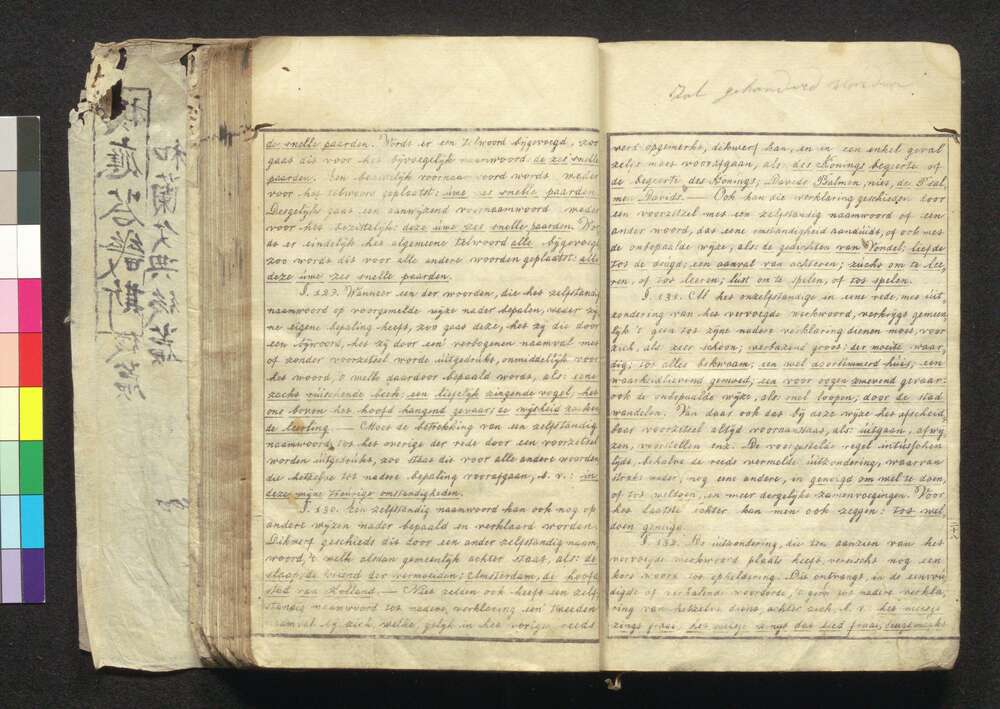 de snelle paarden. Wordt er een telwoord bijgevoegd, zoo
gaat dit voor het bijvoegelijk naamwoord: de zes snelle
paarden. Een bezittelijk voornaamwoord wordt weder
voor het telwoord geplaatst: uwe zes snelle paarden.
Dergelijk gaat een aanwijzend voornaamwoord weder
voor het bezittelijk: deze uwe zes snelle paarden. Wor
dt er eindelijk het algemeene telwoord alle bijgevoegd
zoo wordt dit voor alle andere woorden geplaatst: alle
deze uwe zes snelle paarden.
§. 129. Wanneer een der woorden, die het zelfstandig
naamwoord op voormelde wijze nader bepalen, weder zij
ne eigene bepaling heeft, zoo gaat deze, het zij die door
een bijwoord, het zij door een verbogenen naamval met
of zonder voorzetsel wordt uitgedrukt, onmiddelijk voor
het woord, 't welk daardoor bepaald wordt, als: eene
zacht ruischende beek; een liefelijk zingende vogel; het
ons boven het hoofd hangend gevaar; de wijsheid zoeken
de leerling. — Moet de betrekking van een zelfstandig
naamwoord tot het overige der rede door een voorzetsel
worden uitgedrukt, zoo staat dit voor alle andere woorden
die hetzelve tot nadere bepaling voorafgaan, b. v.: in
deze mijne treurige omstandigheden.
§. 130. Een zelfstandig naamwoord kan ook nog op
andere wijzen nader bepaald en verklaard worden.
Dikwerf geschiedt dit door een ander zelfstandig naam
woord, 't welk alsdan gemeenlijk achter staat, als: de
slaap, de vriend der vermoeiden; Amsterdam, de hoofd
stad van Holland. — Niet zelden ook heeft een zelf
standig naamwoord tot nadere verklaring een tweeden
naamval bij zich, welke, gelijk in het vorige reeds
werd opgemerkt, dikwerf kan, en in een enkel geval
zelfs moet voorafgaan, als: des Konings begeerte of
de begeerte des Konings; Davids Psalmen, niet, de Psal
men Davids. — Ook kan die verklaring geschieden door
een voorzetsel met een zelfstandig naamwoord of een
ander woord, dat eene omstandigheid aanduidt, of ook met
de onbepaalde wijze, als: de gedichten van Vondel; liefde
tot de deugd; een aanval van achteren; zucht om te lee
ren, of tot leeren; lust om te spelen, of tot spelen.
§. 131. Al het onzelfstandige in eene rede, met uit
zondering van het vervoegde werkwoord, verkrijgt gemeen
lijk 't geen tot zijne nadere verklaring dienen moet, voor
zich, als: zeer schoon; verbazend groot; der moeite waar
dig; tot alles bekwaam; een wel getimmerd huis; een
waarheidlievend gemoed; een voor oogen zwevend gevaar:
ook de onbepaalde wijze, als: snel loopen; door de stad
wandelen. Van daar ook dat bij deze wijze het afscheid
baar voorzetsel altijd vooraanstaat, als: uitgaan, afwij
zen, voorstellen enz. De voorgestelde regel intusschen
lijdt, behalve de reeds vermelde uitzondering, waarvan
straks nader, nog eene andere, in geneigd om wel te doen,
of tot weldoen, en meer dergelijke zamenvoegingen. Voor
het laatste echter kan men ook zeggen: tot wel
doen geneigd.
§. 132. De uitzondering, die ten aanzien van het
vervoegde werkwoord plaats heeft, vereischt nog een
kort woord tot opheldering. Dit ontvangt, in de eenvou
digste of verhalende woordorde, 't geen tot nadere verkla
ring van hetzelve dient, achter zich, b. v.: het meisje
zingt fraai, het meisje zingt dat lied fraai;